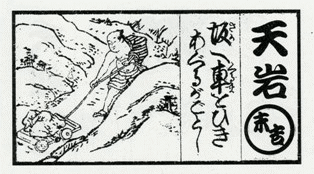 天岩
末吉
坂へ車をひき
あぐるがごとし